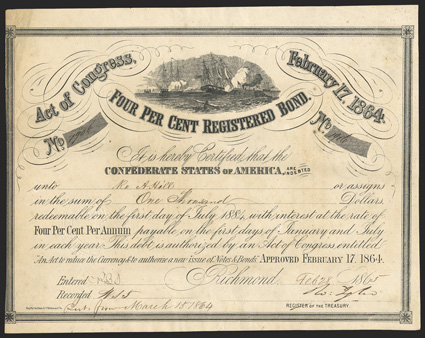 Act of Congress, February 17, 1864.
FOUR PER CENT REGISTERED BOND.
No
No
It is hereby Certified that the
CONFEDERATE STATES OF AMERICA, ARE INDEBTED
unto A Hill or assigns
in the sum of One Thousand Dollars
redeemable on the first day of July 1884, with interest at the rate of
Four Per Cent Per Annum payable on the first days of January and July
in each year. This debt is authorized by an Act of Congress entitled
An Act to reduce the Currency & to authorize a new issue of Notes & Bonds. APPROVED FEBRUARY 17. 1864.
Entered Richmond Feb 28 1865
Recorded
REGISTER OF THE TREASURY.
from March 18 1864